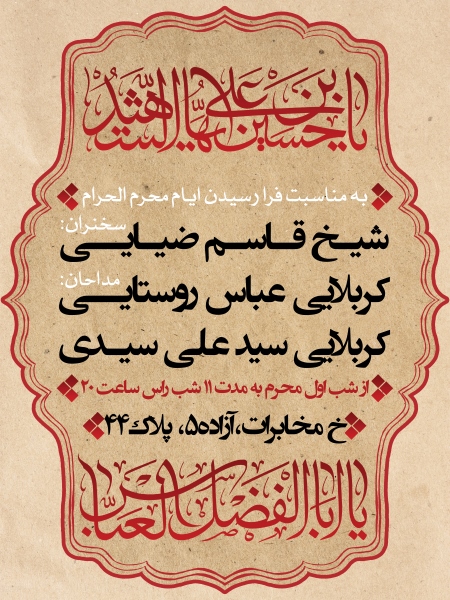 یا حسین بن علی ایها الشهید
به مناسبت فرا رسیدن ایام محرم الحرام
سخنران:
شیخ قاسم ضیایی
مداحان:
کربلایی عباس روستایی
کربلایی سید علی سیدی
از شب اول محرم به مدت ۱۱ شب راس ساعت ۲۰
خ مخابرات،آزاده۵، پلاک۴۴
یا اباالفضل العباس